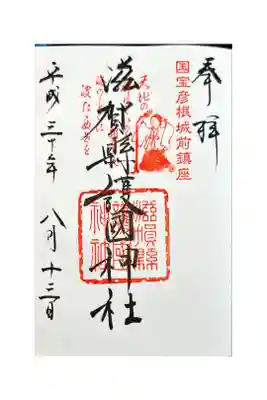 奉拝
国宝彦根城前鎮座
天地の
滋賀縣護國神社
滋賀縣護國神社
平成三十年八月十三日